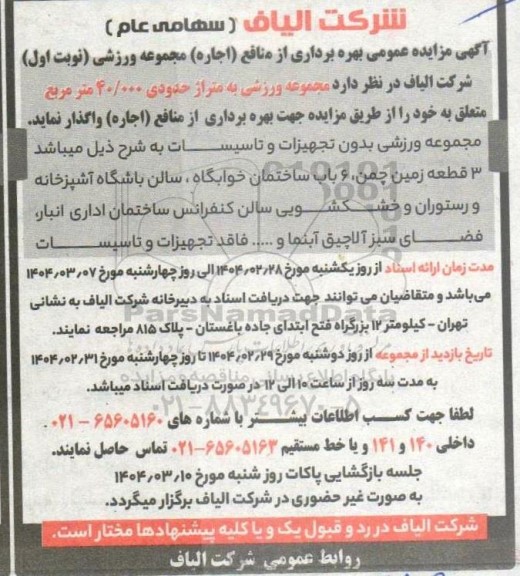 شرکت الیاف ( سهامی عام )
آگهی مزایده عمومی بهره برداری از منافع (اجاره) مجموعه ورزشی (نوبت اول)
شرکت الیاف در نظر دارد مجموعه ورزشی به متراژ حدودی ۴۰/۰۰۰ متر مربع
متعلق به خود را از طریق مزایده جهت بهره برداری از منافع (اجاره) واگذار نماید.
مجموعه ورزشی بدون تجهیزات و تاسیسات به شرح ذیل میباشد
۳ قطعه زمین چمن، ۶ باب ساختمان خوابگاه ، سالن باشگاه آشپزخانه
و رستوران و خشکشویی سالن کنفرانس ساختمان اداری انبار،
فضای سبز آلاچیق آبنما و ..... فاقد تجهیزات و تاسیسات
مدت زمان ارائه اسناد از روز یکشنبه مورخ ۱۴۰۴،۰۲،۲۸ الی روز چهارشنبه مورخ ۱۴۰۴،۰۳،۰۷
می‌باشد و متقاضیان می توانند جهت دریافت اسناد به دبیرخانه شرکت الیاف به نشانی
تهران - کیلومتر ۱۲ بزرگراه فتح ابتدای جاده باغستان - پلاک ۸۱۵ مراجعه نمایند.
تاریخ بازدید از مجموعه از روز دوشنبه مورخ ۱۴۰۴،۰۲،۲۹ تا روز چهارشنبه مورخ ۱۴۰۴،۰۲،۳۱
به مدت سه روز از ساعت ۱۰ الی ۱۲ در صورت دریافت اسناد میباشد.
لطفا جهت کسب اطلاعات بیشتر با شماره های ۶۵۶۰۵۱۶۰ - ۰۲۱
داخلی ۱۴۰ و ۱۴۱ و یا خط مستقیم ۶۵۶۰۵۱۶۳-۰۲۱ تماس حاصل نمایند.
جلسه بازگشایی پاکات روز شنبه مورخ ۱۴۰۴،۰۳،۱۰
به صورت غیر حضوری در شرکت الیاف برگزار میگردد.
شرکت الیاف در رد و قبول یک و یا کلیه پیشنهادها مختار است.
روابط عمومی شرکت الیاف
ParsNamadData
۰۲۱-۸۸۳۴۹۶۷۰-۵